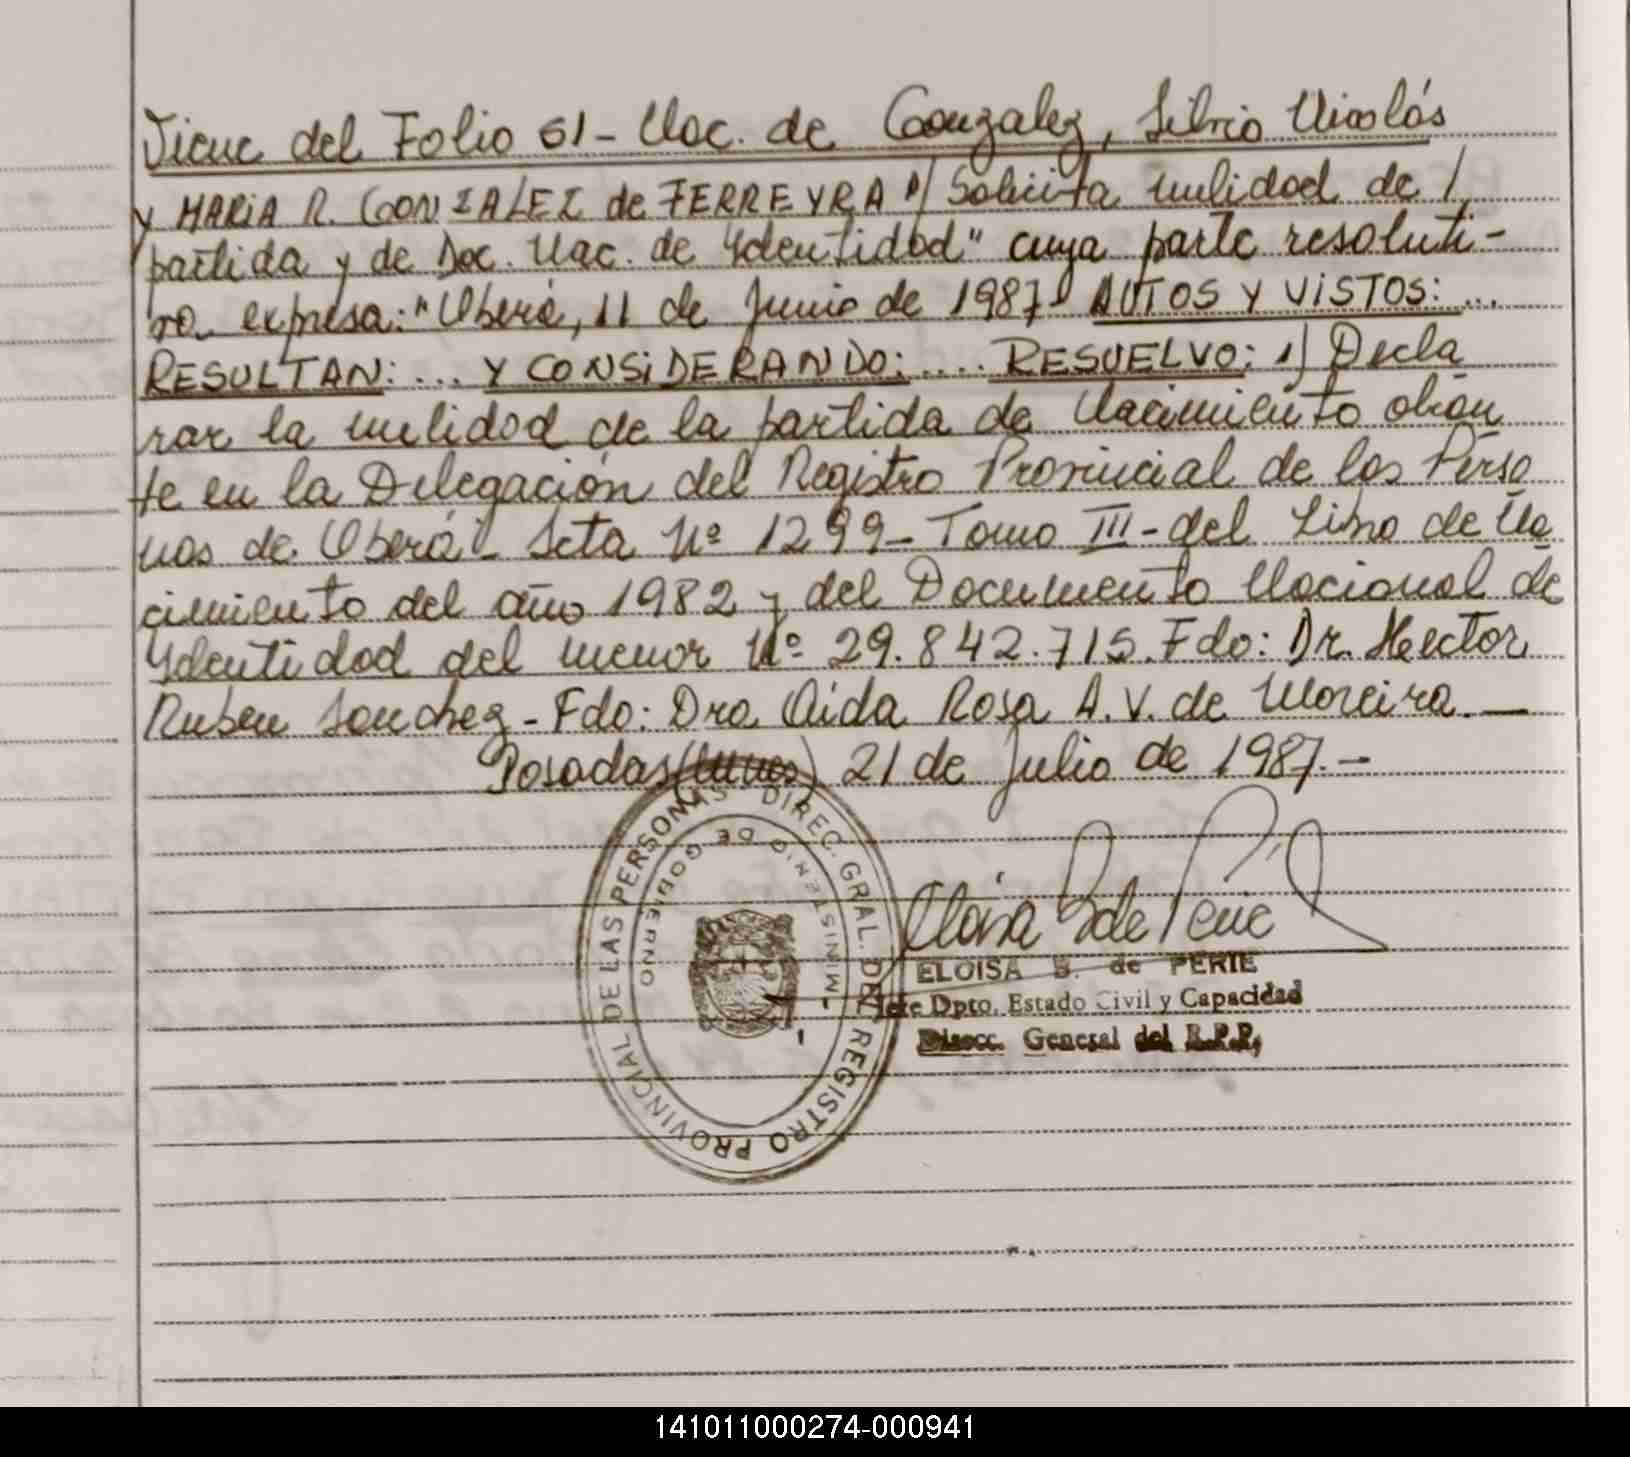 Viene del Folio 61- Nac. de Gonzalez, Silvio Nicolás
y MARIA R. GONZALEZ de FERREYRA s/ Solicita nulidad de
partida y de Doc. Nac. de Identidad" cuya parte resoluti-
va expresa: "Oberá, 11 de Junio de 1987- AUTOS Y VISTOS: ...
RESULTAN: ... Y CONSIDERANDO: .... RESUELVO: 1) Decla
rar la nulidad de la partida de Nacimiento obran
te en la Delegación del Registro Provincial de las Perso
nas de Oberá- Acta Nº 1299- Tomo III- del Libro de Na
cimiento del año 1982 y del Documento Nacional de
Identidad del menor Nº 29.842.715. Fdo: Dr. Hector
Ruben Sanchez - Fdo: Dra Aida Rosa A. V. de Moreira.—
Posadas (Mnes) 21 de Julio de 1987.-
DIREC. GRAL. DEL REGISTRO PROVINCIAL DE LAS PERSONAS
MINISTERIO DE GOBIERNO
Eloisa B de Perie
ELOISA B. de PERIE
Jefe Dpto. Estado Civil y Capacidad
Direcc. General del R.P.P.
141011000274-000941